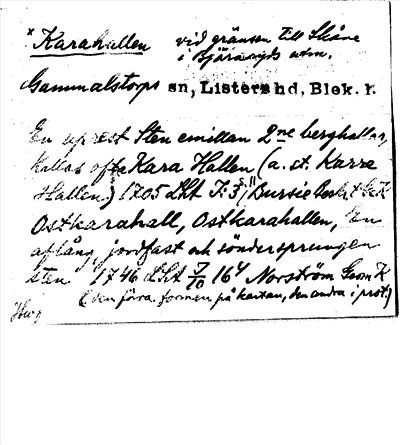 x Karahallen vid gränsen till Skåne
i Bjäraryds utm.
Gammalstorps sn, Listers hd, Blek. l.
En uprest Sten emillan 2ne berghallar,
kallas ofta Kara Hallen (a. st. Karra
Hallen) 1705 LAt
Ostkarahall, Ostkarahallen, En
aflång, jordfast och söndersprungen
sten 1746 LAt 7/10 164 Norström Geom. K
(den förra formen på kartan, den andra i prot.)